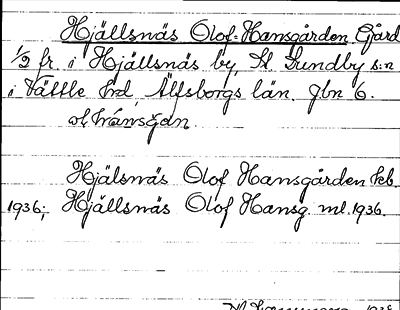 Hjällsnäs Olof-Hansgården, Gård
1/2 fr. i Hjällsnäs by, St. Lundby s:n
i Vättle hrd, Älfsborgs län. Jbn 6.
Hjälsnäs Olof Hansgården kb.
1936; Hjällsnäs Olof Hansg. ml. 1936.